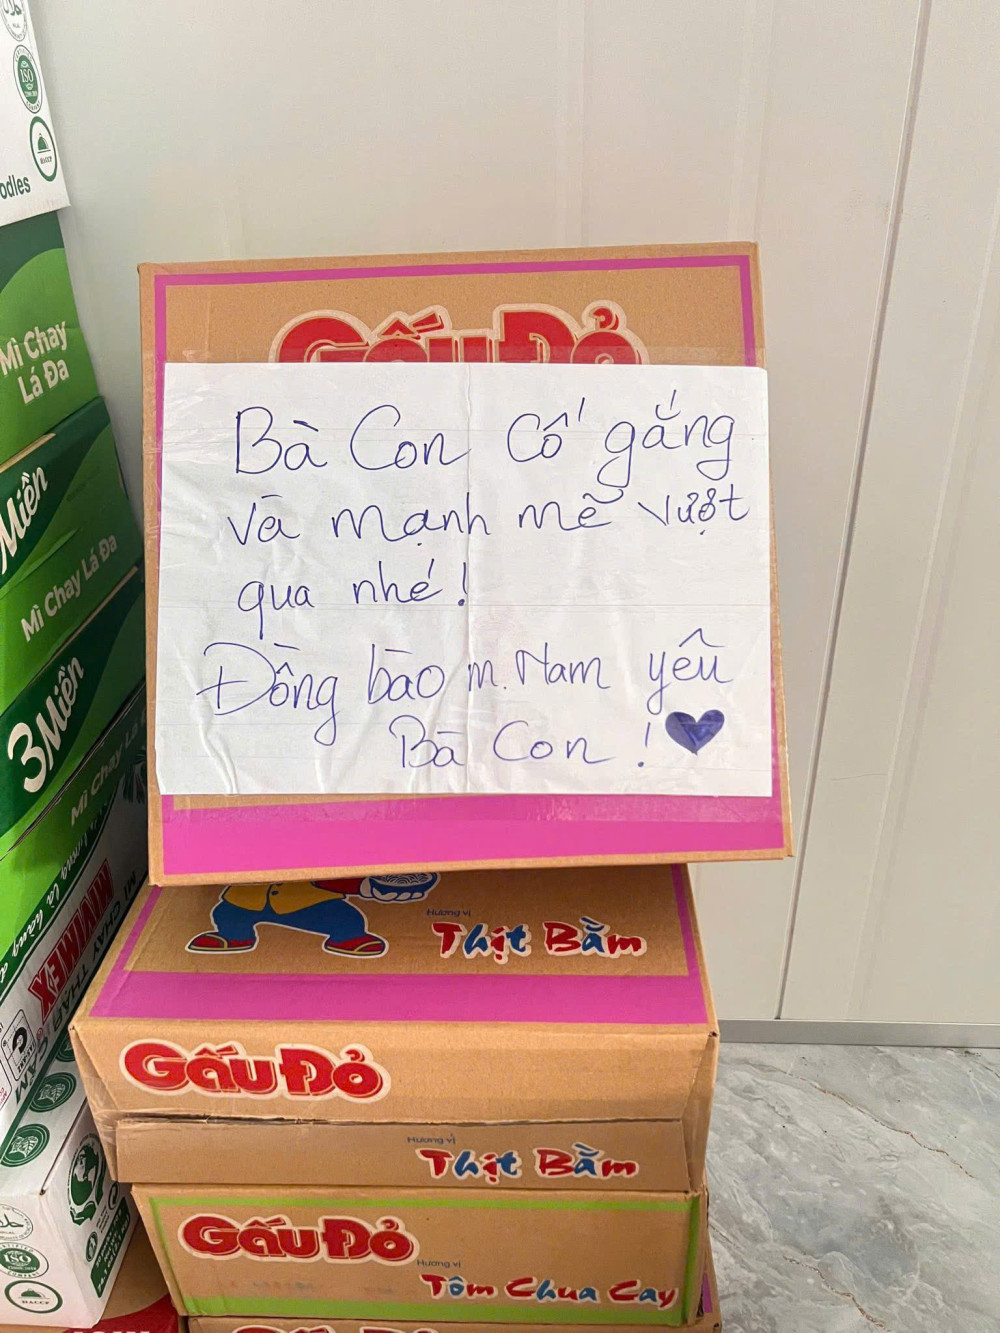 odles
ISO
HACCP
Mì Chay
Lá Đa
Miền
Mì Chay Lá Đa
3 Miền
Mì Chay Lá
GẤU ĐỎ
Bà Con Cố gắng
và mạnh mẽ vượt
qua nhé!
Đồng bào m.Nam yêu
Bà Con !
Hương vị
Thịt Bằm
GẤU ĐỎ
Hương vị
Thịt Bằm
GẤU ĐỎ
Hương vị
Tôm Chua Cay
ISO
HACCP